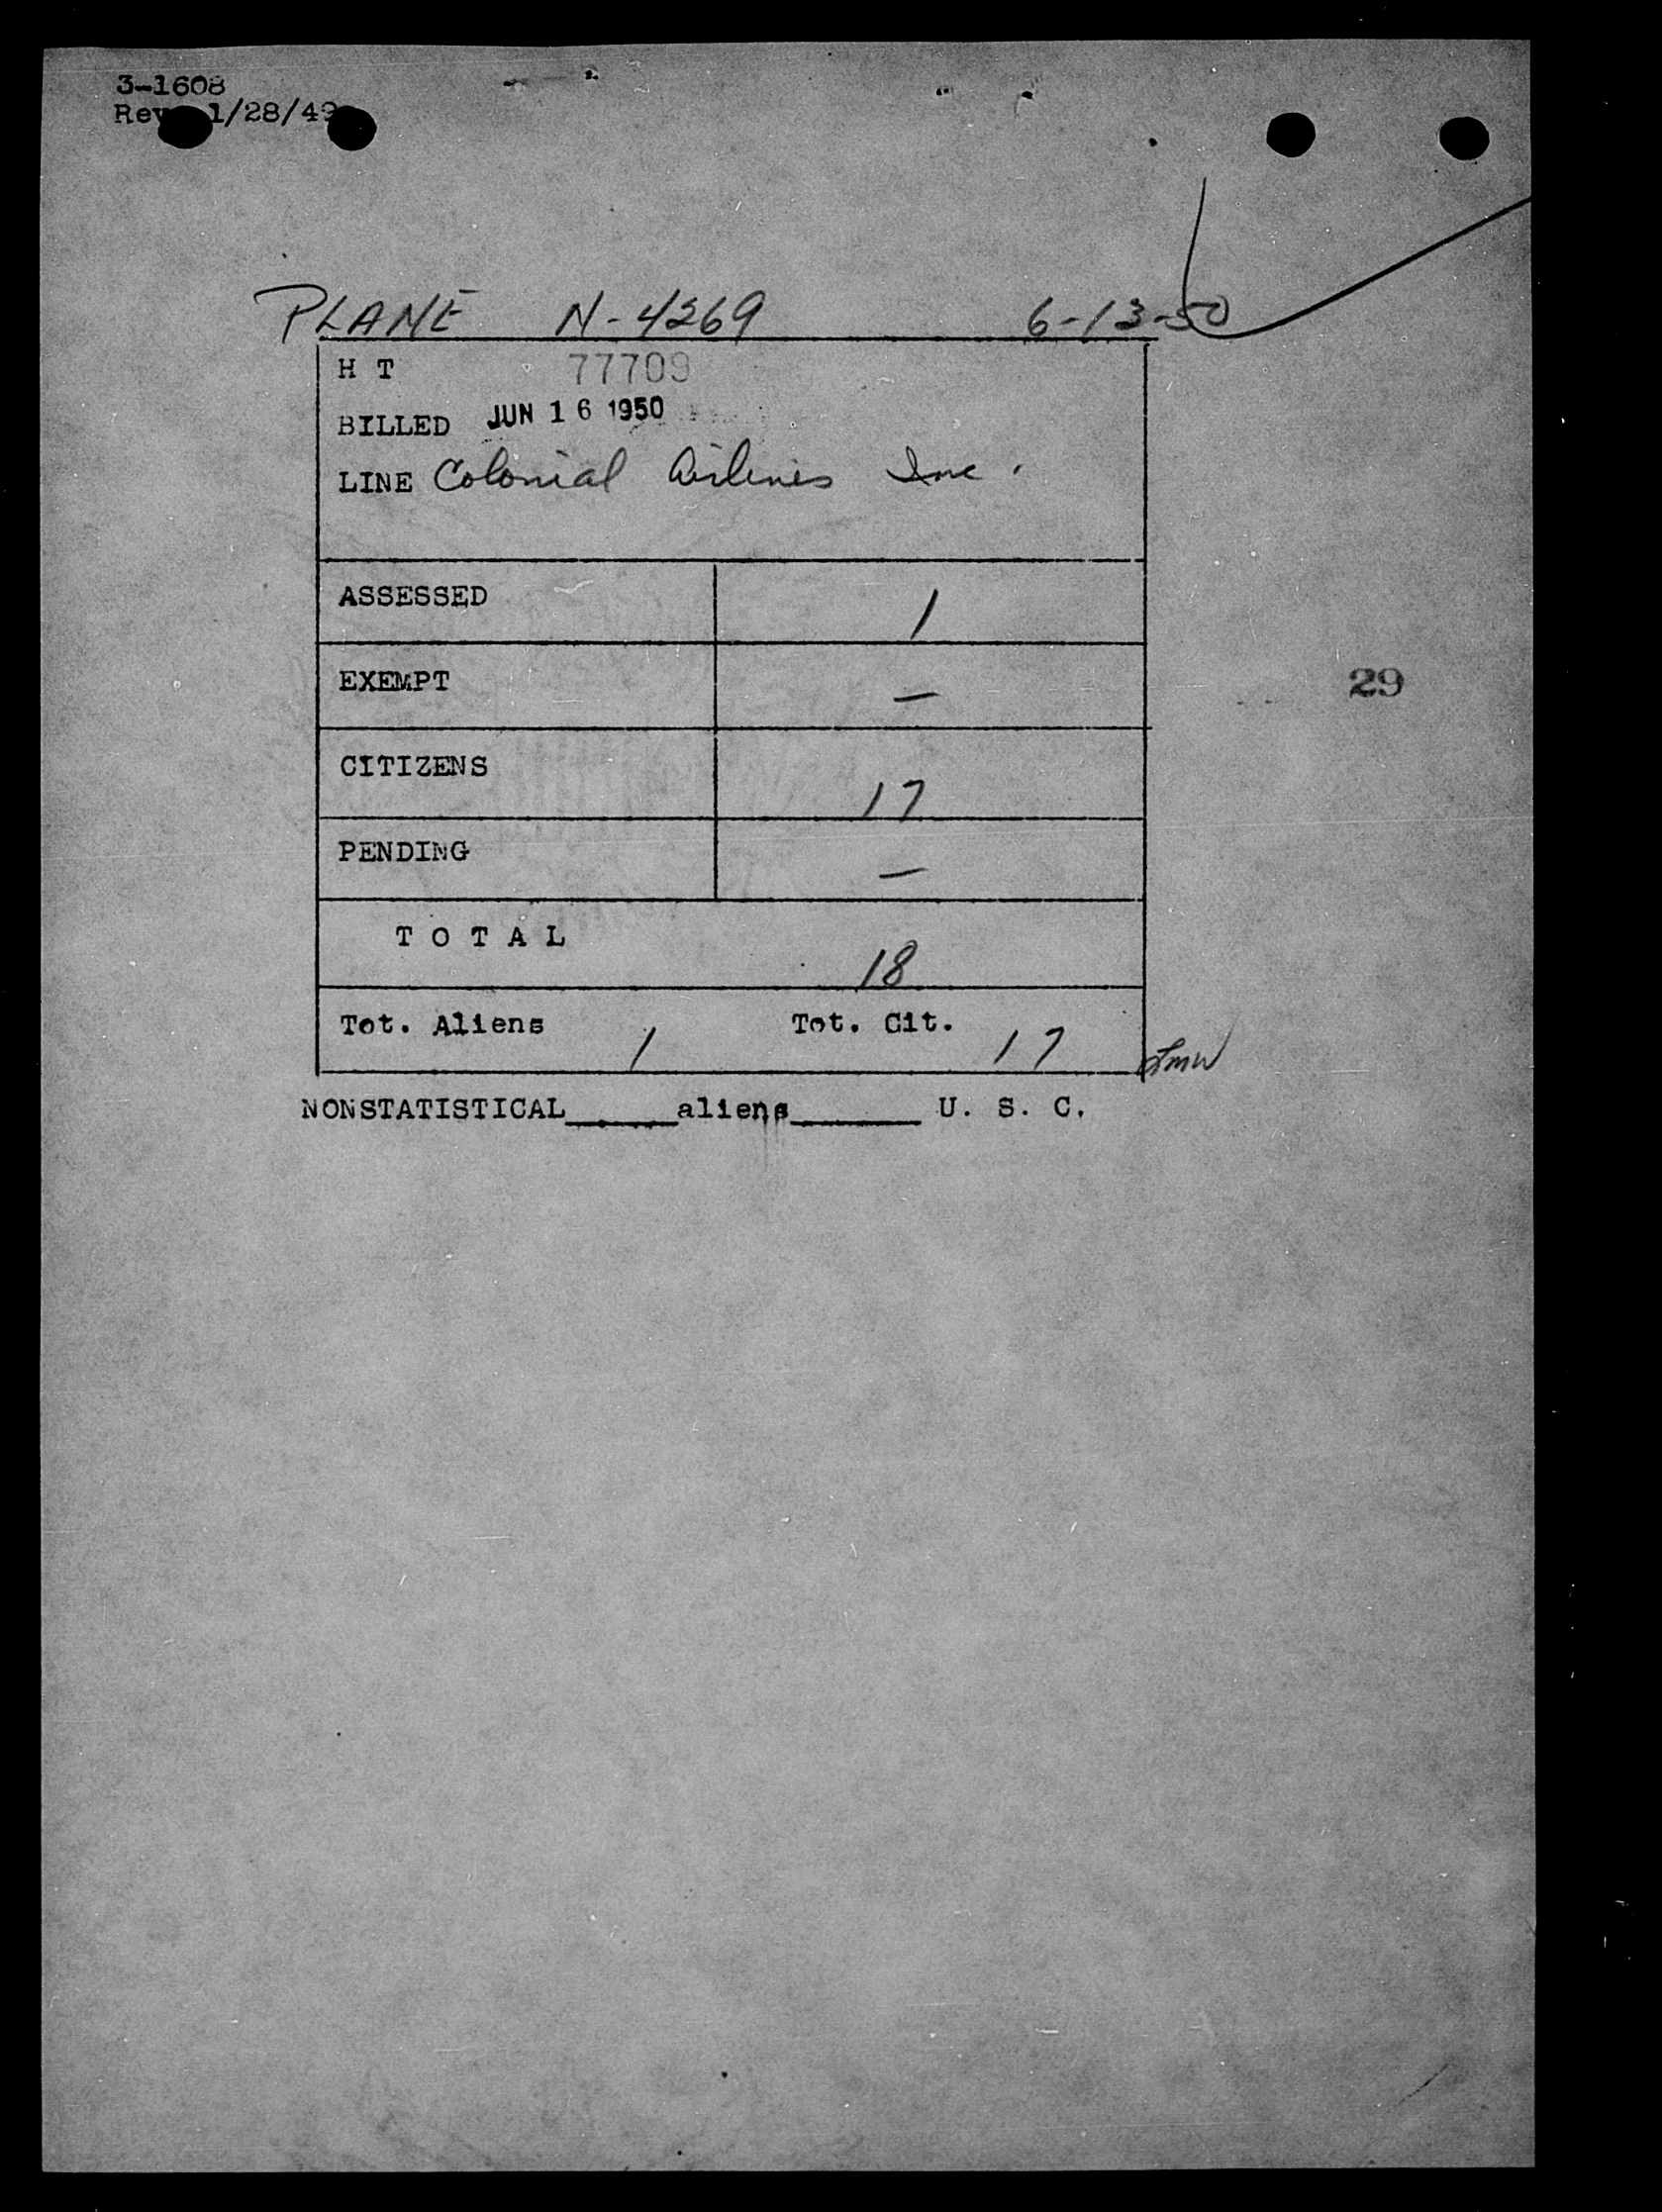 3-1608
Rev 1/28/49
PLANE N-4269 6-13-50
H T 77709
BILLED JUN 16 1950
LINE Colonial Airlines Inc.
ASSESSED 1
EXEMPT —
29
CITIZENS 17
PENDING —
T O T A L 18
Tot. Aliens 1 Tot. Cit. 17
NONSTATISTICAL_____aliens______ U. S. C.